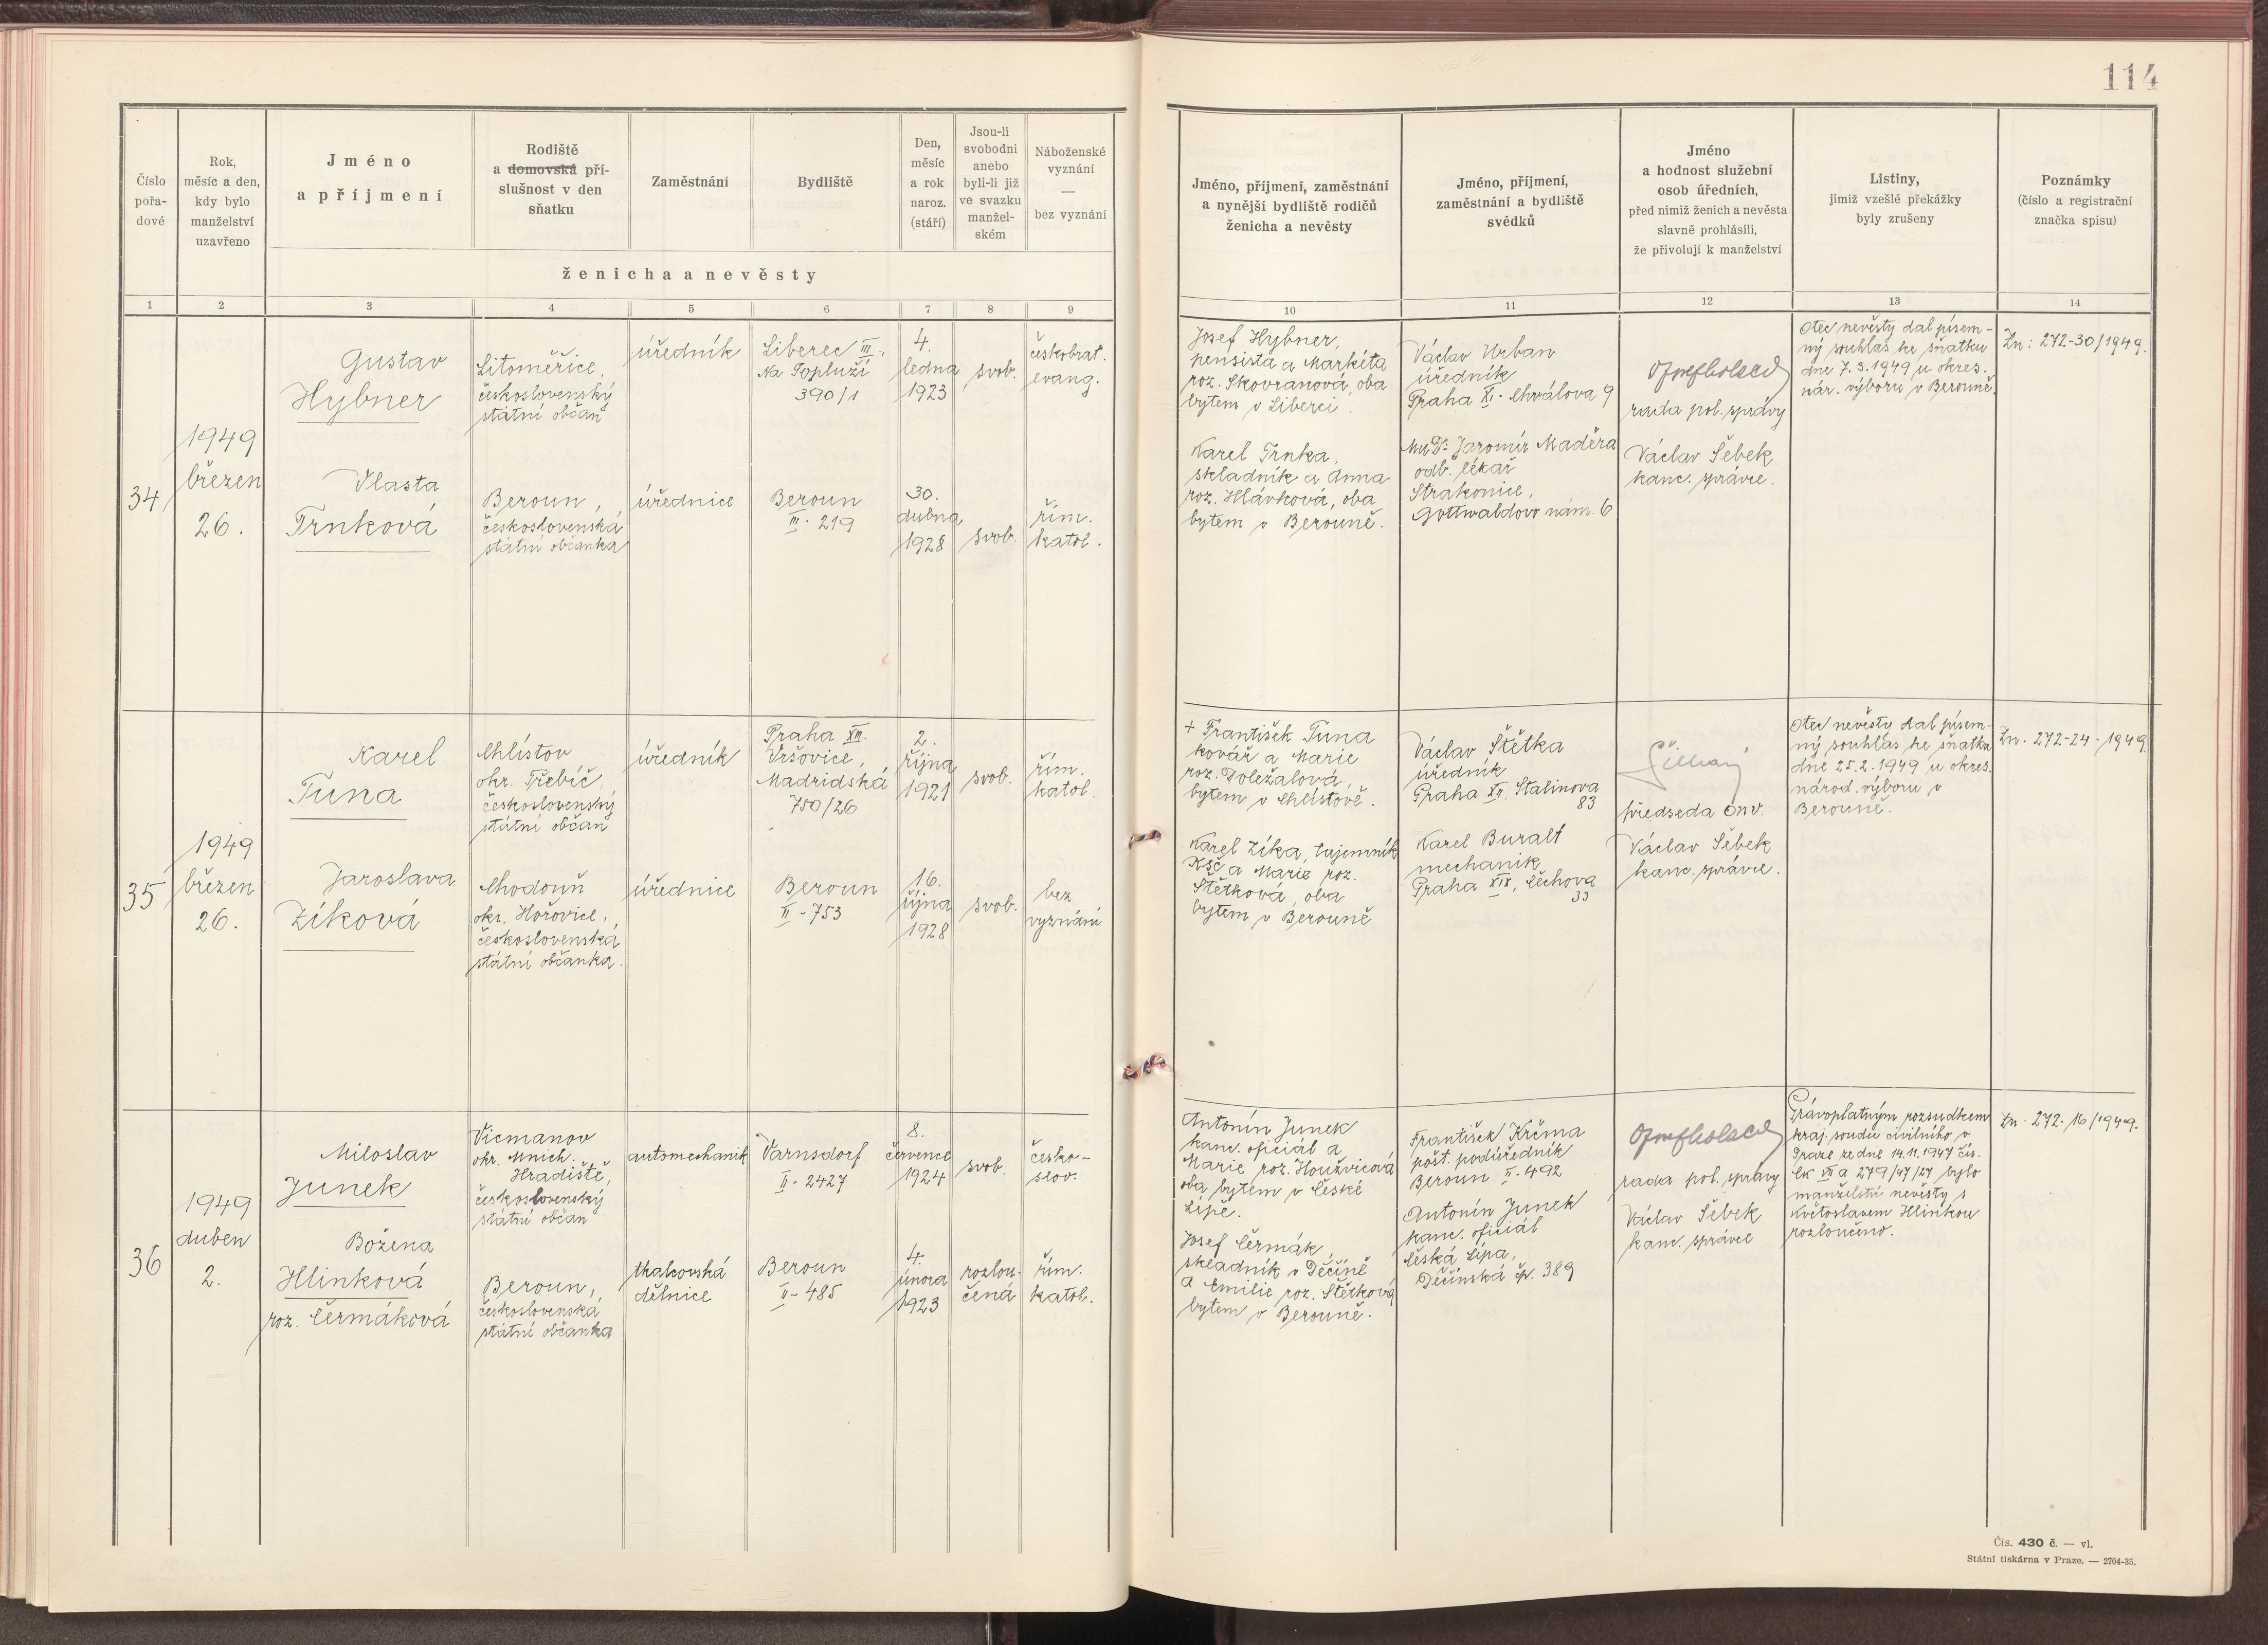 114
Číslo pořa- dové
Rok, měsíc a den, kdy bylo manželství uzavřeno
Jméno a příjmení
Rodiště a domovská pří- slušnost v den sňatku
Zaměstnání
Bydliště
Den, měsíc a rok naroz. (stáří)
Jsou-li svobodni anebo byli-li již ve svazku manžel- ském
Náboženské vyznání — bez vyznání
ženicha a nevěsty
Jméno, příjmení, zaměstnání a nynější bydliště rodičů ženicha a nevěsty
Jméno, příjmení, zaměstnání a bydliště svědků
Jméno a hodnost služební osob úředních, před nimiž ženich a nevěsta slavně prohlásili, že přivolují k manželství
Listiny, jimiž vzešlé překážky byly zrušeny
Poznámky (číslo a registrační značka spisu)
1 2 3 4 5 6 7 8 9 10 11 12 13 14
34
1949
březen
26.
Gustav
Hybner
Litoměřice,
československý
státní občan
úředník
Liberec III.,
Na Popluží
390/1
4.
ledna
1923
svob.
českobrat.
evang.
Vlasta
Trnková
Beroun,
československá
státní občanka
úřednice
Beroun
III. 219
30.
dubna
1928
svob.
řím.
katol.
Josef Hybner,
pensista a Markéta
roz. Skovranová, oba
bytem v Liberci.
Karel Trnka,
skladník a Anna
roz. Hlávková, oba
bytem v Berouně.
Václav Urban
úředník
Praha XI. Chválova 9
MuDr. Jaromír Maděra
odb. lékař
Strakonice,
Gottwaldovo nám. 6
rada pol. správy
Václav Šebek
kanc. správce.
Otec nevěsty dal písem-
ný souhlas ke sňatku
dne 7.3.1949 u okres.
nár. výboru v Berouně.
Zn: 272-30/1949.
35
1949
březen
26.
Karel
Tůna
Chlístov
okr. Třebíč,
československý
státní občan
úředník
Praha XIII.
Vršovice,
Madridská
750/26
2.
října
1921
svob.
řím.
katol.
Jaroslava
Zíková
Chodouň
okr. Hořovice,
československá
státní občanka.
úřednice
Beroun
II - 753
16.
října
1928
svob.
bez
vyznání
+ František Tůna
kovář a Marie
roz. Doležalová,
bytem v Chlístově.
Karel Zíka, tajemník
KSČ a Marie roz.
Štětková, oba
bytem v Berouně
Václav Štětka
úředník
Praha XII. Stalinova
83
Karel Buralt
mechanik
Praha XIX, Čechova
33
předseda ONV.
Václav Šebek
kanc. správce.
Otec nevěsty dal písem-
ný souhlas ke sňatku
dne 25.2.1949 u okres.
národ. výboru v
Berouně.
Zn. 272-24-1949.
36
1949
duben
2.
Miloslav
Junek
Vicmanov
okr. Mnich.
Hradiště,
československý
státní občan
automechanik
Varnsdorf
II. 2427
8.
července
1924
svob.
česko-
slov.
Božena
Hlinková
roz. Čermáková
Beroun,
československá
státní občanka
tkalcovská
dělnice
Beroun
II - 485
4.
února
1923
rozlou-
čená
řím.
katol.
Antonín Junek
kanc. oficiál a
Marie roz. Houžvicová
oba bytem v České
Lípě.
Josef Čermák,
skladník v Děčíně
a Emilie roz. Štětková
bytem v Berouně.
František Krčma
pošt. podúředník
Beroun II. 492
Antonín Junek
kanc. oficiál
Česká Lípa,
Děčínská čp. 389
rada pol. správy
Václav Šebek
kanc. správce
Právoplatným rozsudkem
kraj. soudu civilního v
Praze ze dne 14.11.1947 čís.
Ck VII a 279/47/27 bylo
manželství nevěsty s
Květoslavem Hlinkou
rozloučeno.
Zn. 272-16/1949.
Čís. 430 č. — vl.
Státní tiskárna v Praze. — 2704-35.